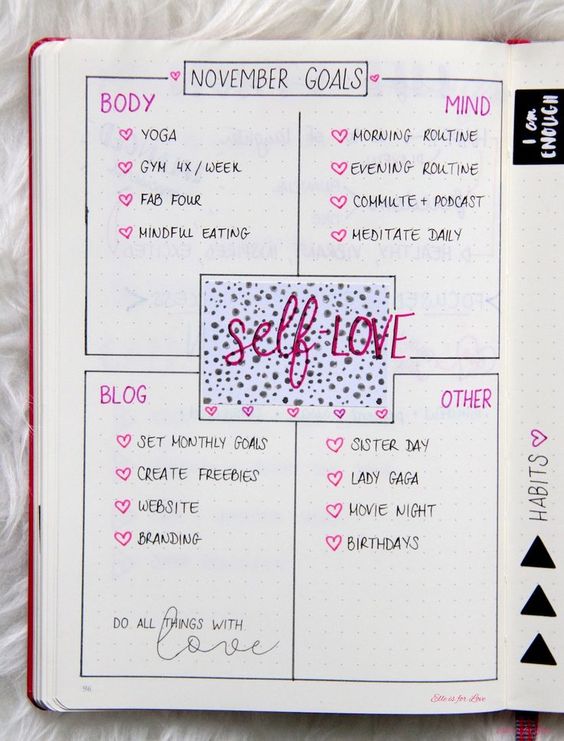 NOVEMBER GOALS
BODY
YOGA
GYM 4X/WEEK
FAB FOUR
MINDFUL EATING
MIND
MORNING ROUTINE
EVENING ROUTINE
COMMUTE + PODCAST
MEDITATE DAILY
self-LOVE
BLOG
SET MONTHLY GOALS
CREATE FREEBIES
WEBSITE
BRANDING
DO ALL THINGS WITH
love
OTHER
SISTER DAY
LADY GAGA
MOVIE NIGHT
BIRTHDAYS
Elle is for Love
I am
ENOUGH
HABITS